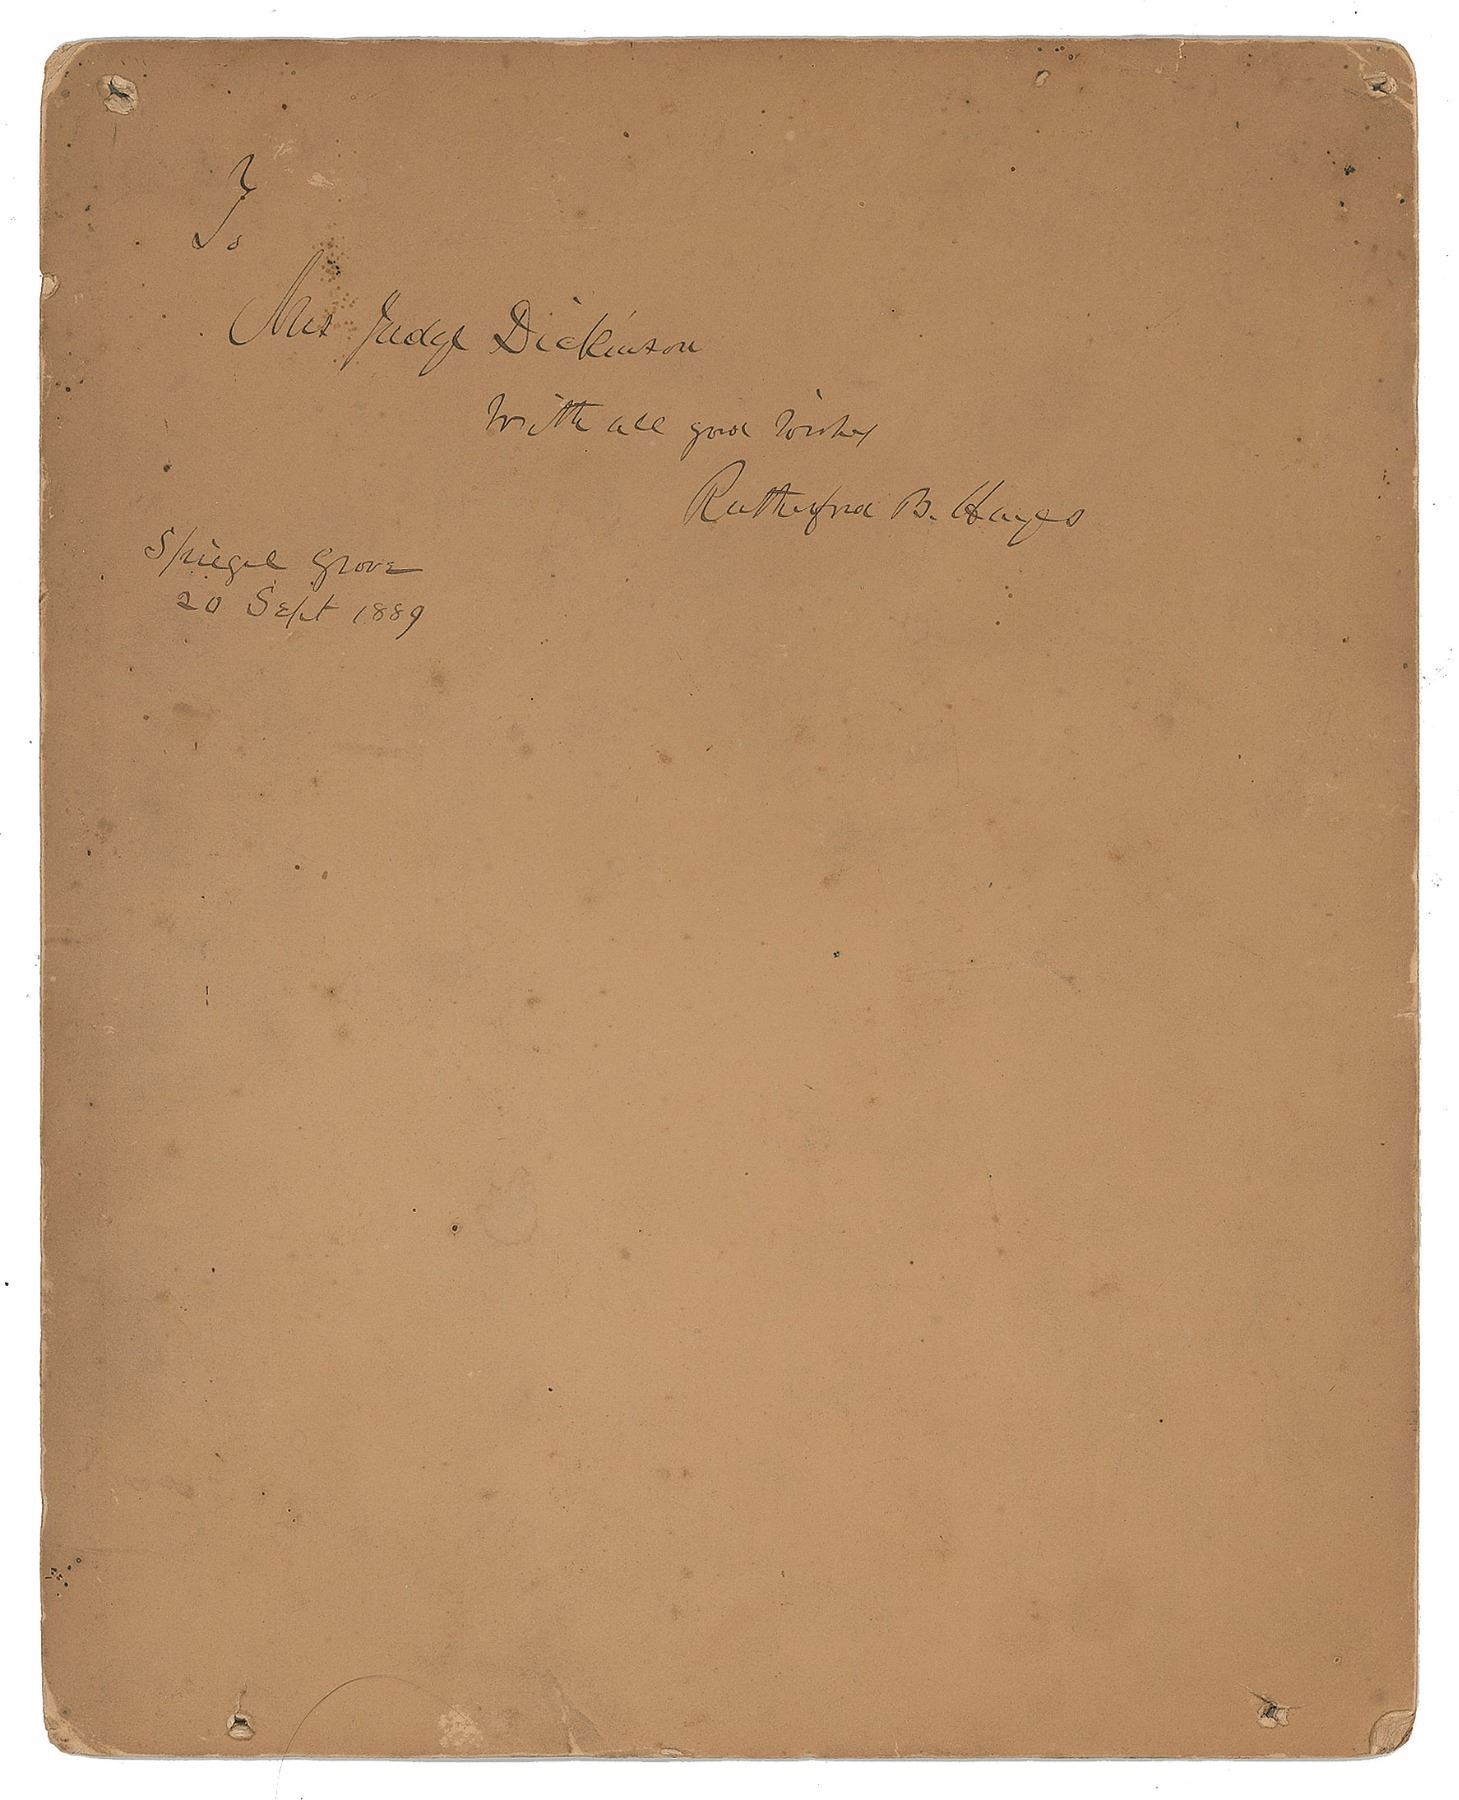 To
Mrs Judge Dickinson
With all good wishes
Rutherford B. Hayes
Spiegel Grove
20 Sept 1889